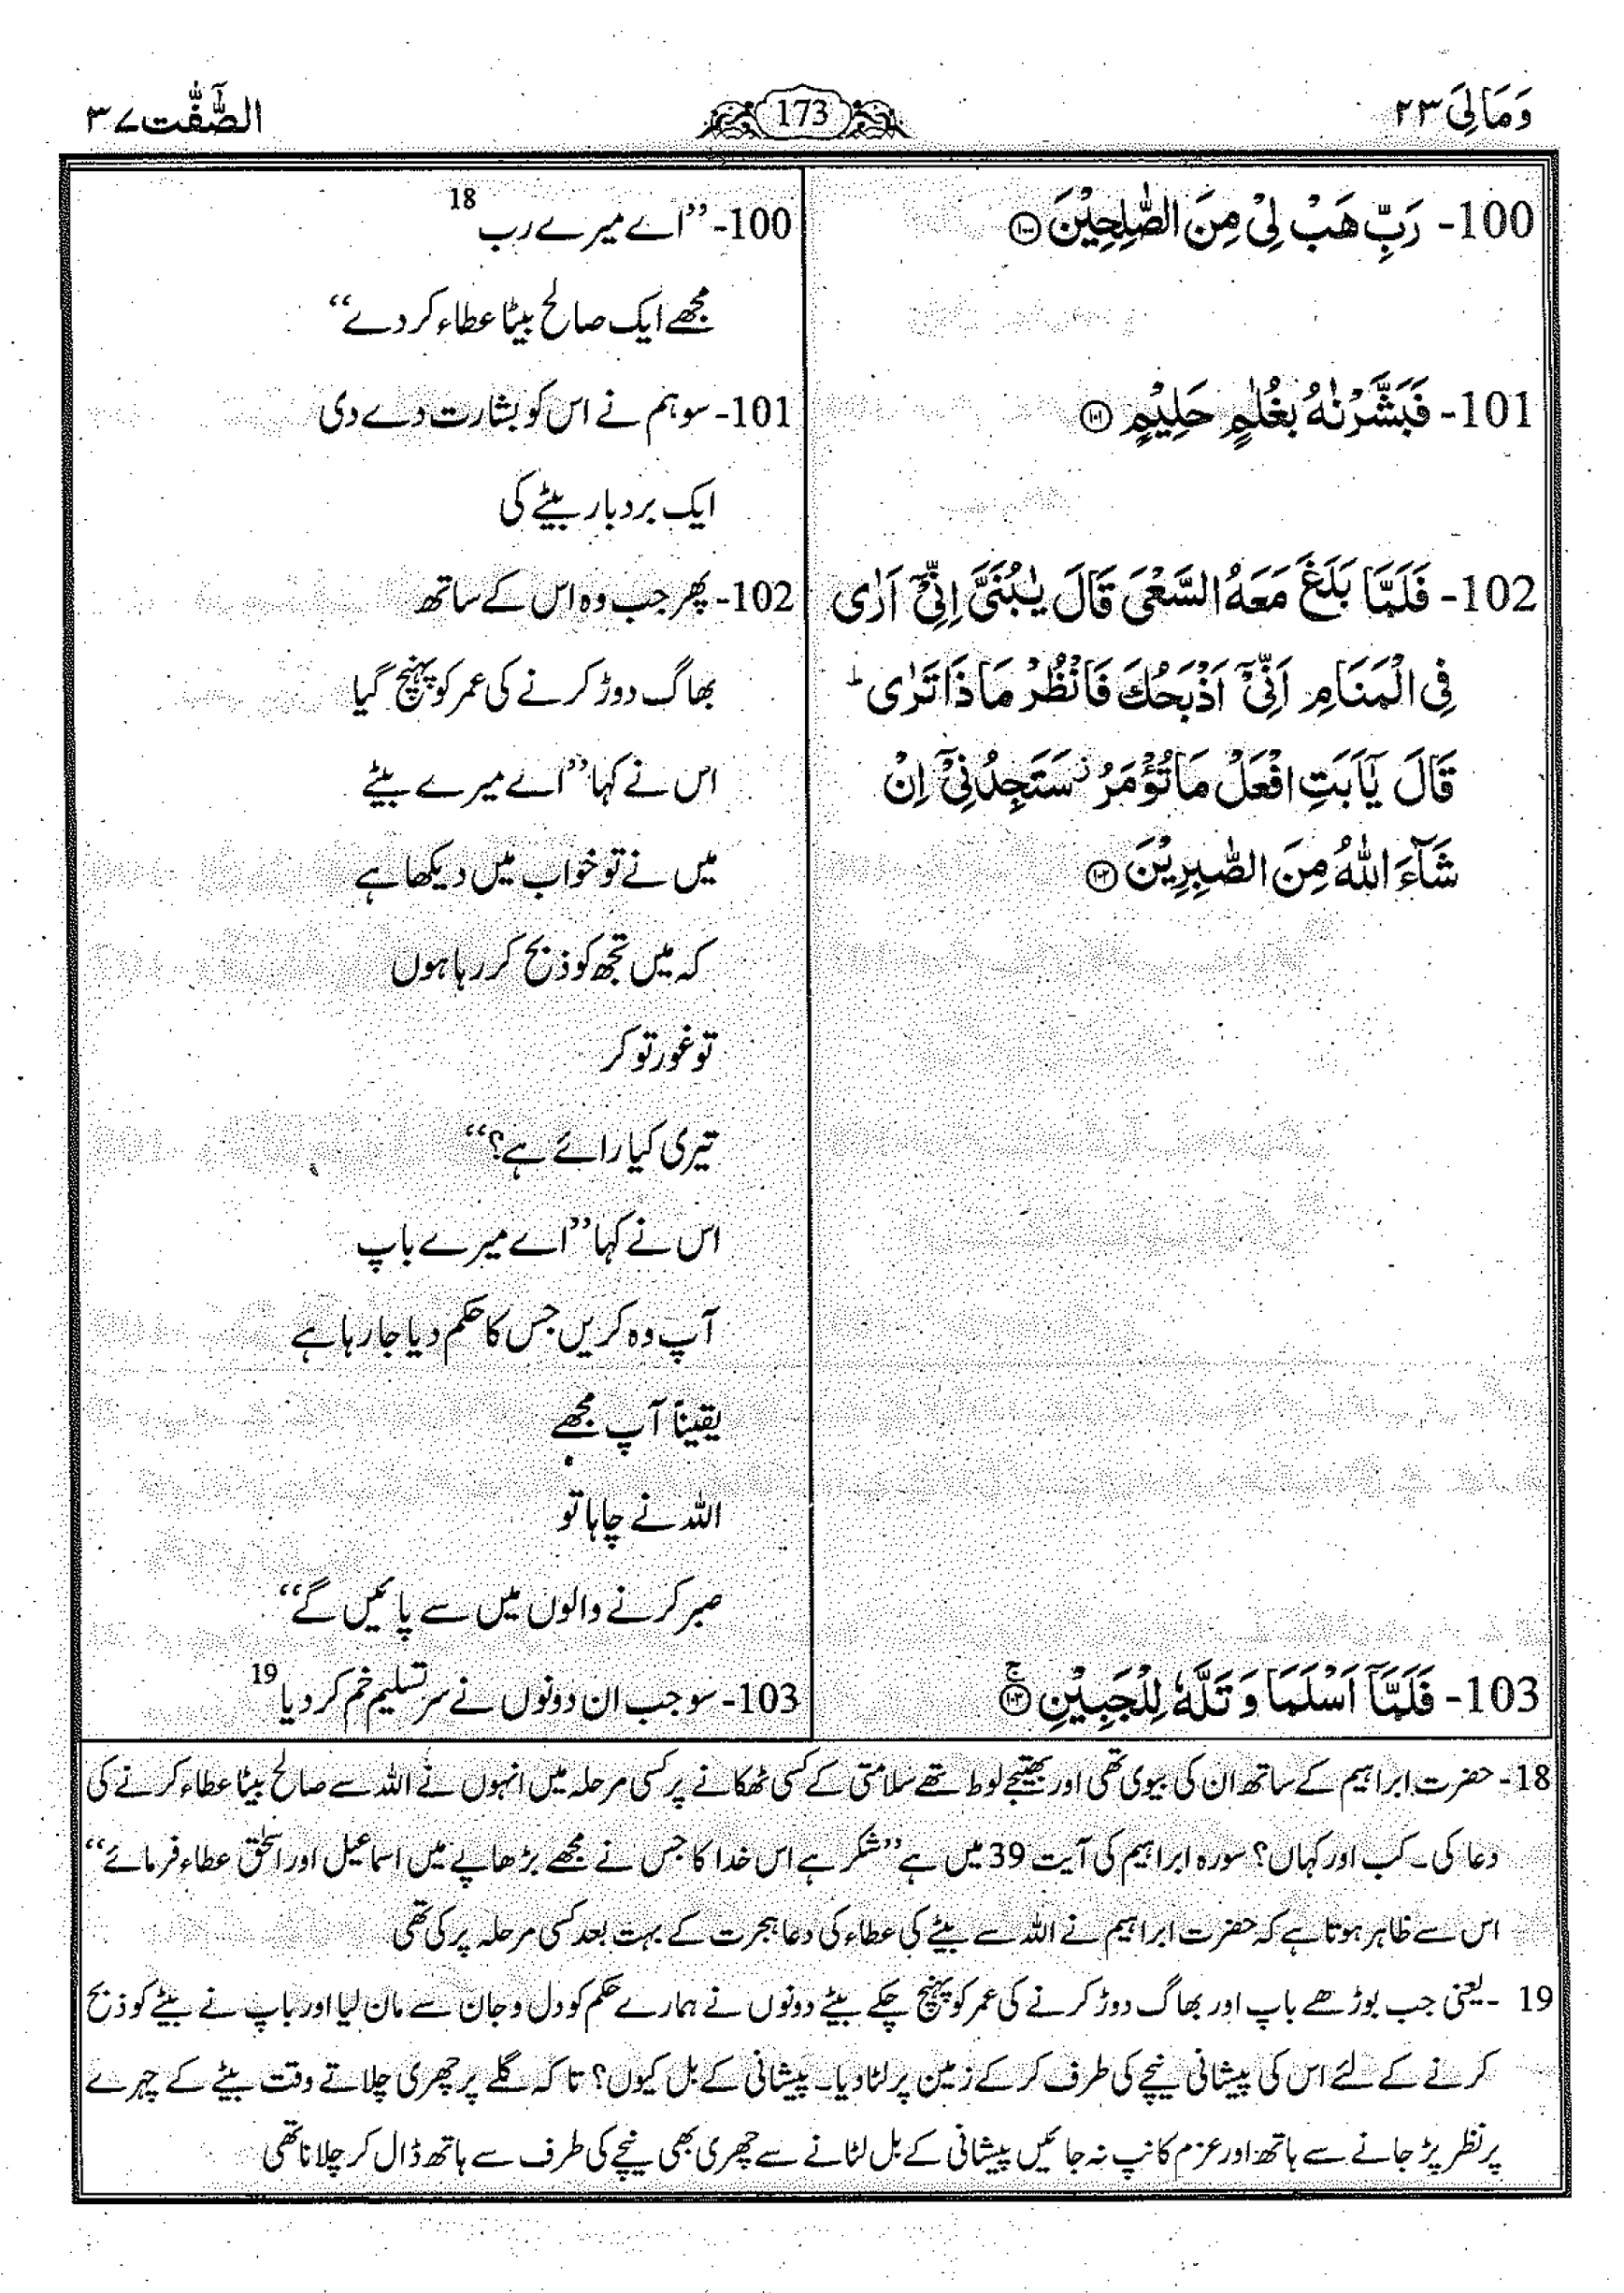 وَمَالِیَ ۲۳
173
الصّٰٓفّٰت ۳۷
100- رَبِّ هَبْ لِیْ مِنَ الصّٰلِحِیْنَ ۝۱۰۰
101- فَبَشَّرْنٰهُ بِغُلٰمٍ حَلِیْمٍ ۝۱۰۱
102- فَلَمَّا بَلَغَ مَعَهُ السَّعْیَ قَالَ یٰبُنَیَّ اِنِّیْۤ اَرٰی
فِی الْمَنَامِ اَنِّیْۤ اَذْبَحُكَ فَانْظُرْ مَاذَا تَرٰی ؕ
قَالَ یٰۤاَبَتِ افْعَلْ مَا تُؤْمَرُ ؗ سَتَجِدُنِیْۤ اِنْ
شَآءَ اللّٰهُ مِنَ الصّٰبِرِیْنَ ۝۱۰۲
103- فَلَمَّاۤ اَسْلَمَا وَ تَلَّهٗ لِلْجَبِیْنِ ۝۱۰۳ۚ
100- ”اے میرے رب 18
مجھے ایک صالح بیٹا عطاء کر دے“
101- سو ہم نے اس کو بشارت دے دی
ایک بردبار بیٹے کی
102- پھر جب وہ اس کے ساتھ
بھاگ دوڑ کرنے کی عمر کو پہنچ گیا
اس نے کہا ”اے میرے بیٹے
میں نے تو خواب میں دیکھا ہے
کہ میں تجھ کو ذبح کر رہا ہوں
تو غور تو کر
تیری کیا رائے ہے؟“
اس نے کہا ”اے میرے باپ
آپ وہ کریں جس کا حکم دیا جا رہا ہے
یقیناً آپ مجھے
اللہ نے چاہا تو
صبر کرنے والوں میں سے پائیں گے“
103- سو جب ان دونوں نے سر تسلیم خم کر دیا 19
18- حضرت ابراہیم کے ساتھ ان کی بیوی تھی اور بھتیجے لوط تھے سلامتی کے کسی ٹھکانے پر کسی مرحلہ میں انہوں نے اللہ سے صالح بیٹا عطاء کرنے کی
دعا کی۔ کب اور کہاں؟ سورہ ابراہیم کی آیت 39 میں ہے ”شکر ہے اس خدا کا جس نے مجھے بڑھاپے میں اسماعیل اور اسحٰق عطاء فرمائے“
اس سے ظاہر ہوتا ہے کہ حضرت ابراہیم نے اللہ سے بیٹے کی عطاء کی دعا ہجرت کے بہت بعد کسی مرحلہ پر کی تھی
19 ۔ یعنی جب بوڑھے باپ اور بھاگ دوڑ کرنے کی عمر کو پہنچ چکے بیٹے دونوں نے ہمارے حکم کو دل و جان سے مان لیا اور باپ نے بیٹے کو ذبح
کرنے کے لئے اس کی پیشانی نیچے کی طرف کر کے زمین پر لٹا دیا۔ پیشانی کے بل کیوں؟ تا کہ گلے پر چھری چلاتے وقت بیٹے کے چہرے
پر نظر پڑ جانے سے ہاتھ اور عزم کانپ نہ جائیں پیشانی کے بل لٹانے سے چھری بھی نیچے کی طرف سے ہاتھ ڈال کر چلانا تھی